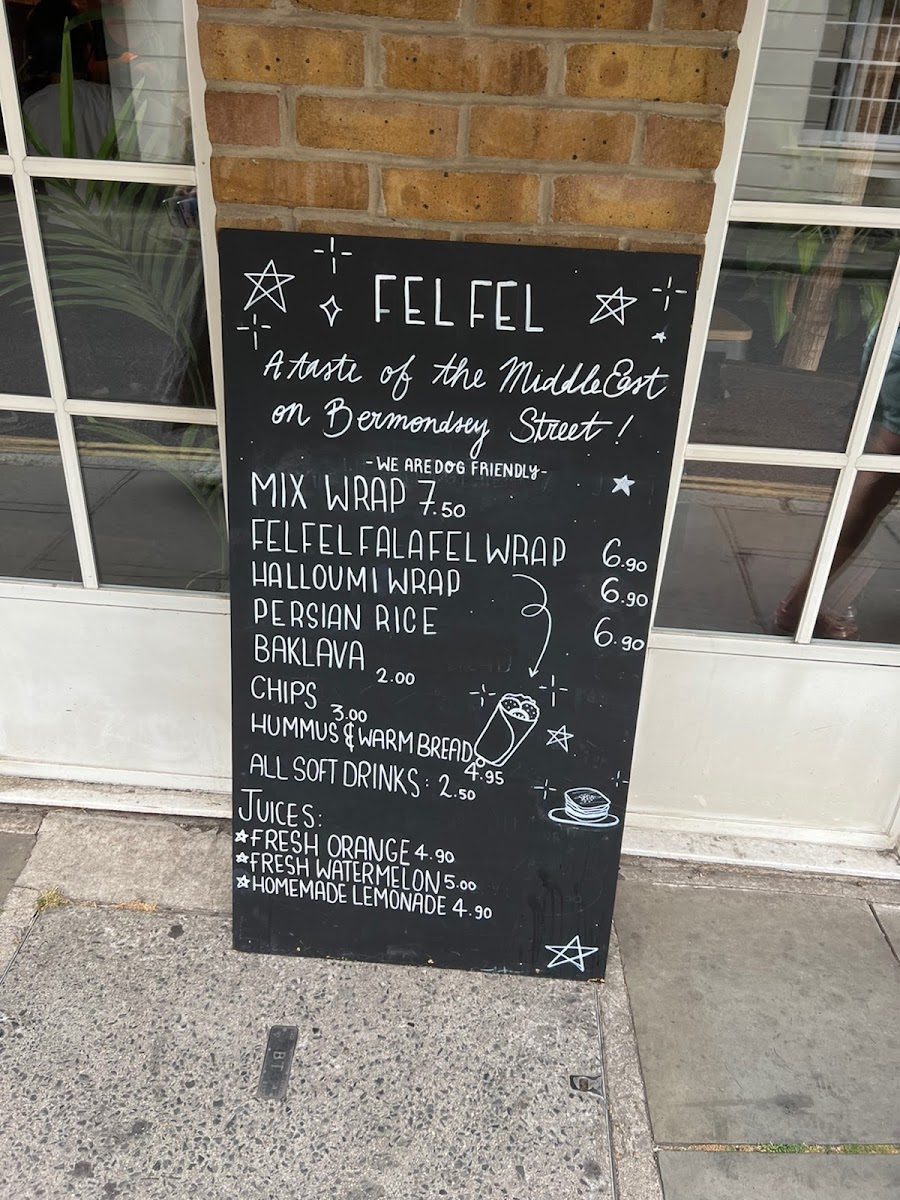 FELFEL
A taste of the Middle East
on Bermondsey Street!
- WE ARE DOG FRIENDLY -
MIX WRAP 7.50
FELFEL FALAFEL WRAP 6.90
HALLOUMI WRAP 6.90
PERSIAN RICE 6.90
BAKLAVA 2.00
CHIPS 3.00
HUMMUS & WARM BREAD 4.95
ALL SOFT DRINKS: 2.50
JUICES:
FRESH ORANGE 4.90
FRESH WATERMELON 5.00
HOMEMADE LEMONADE 4.90
BT